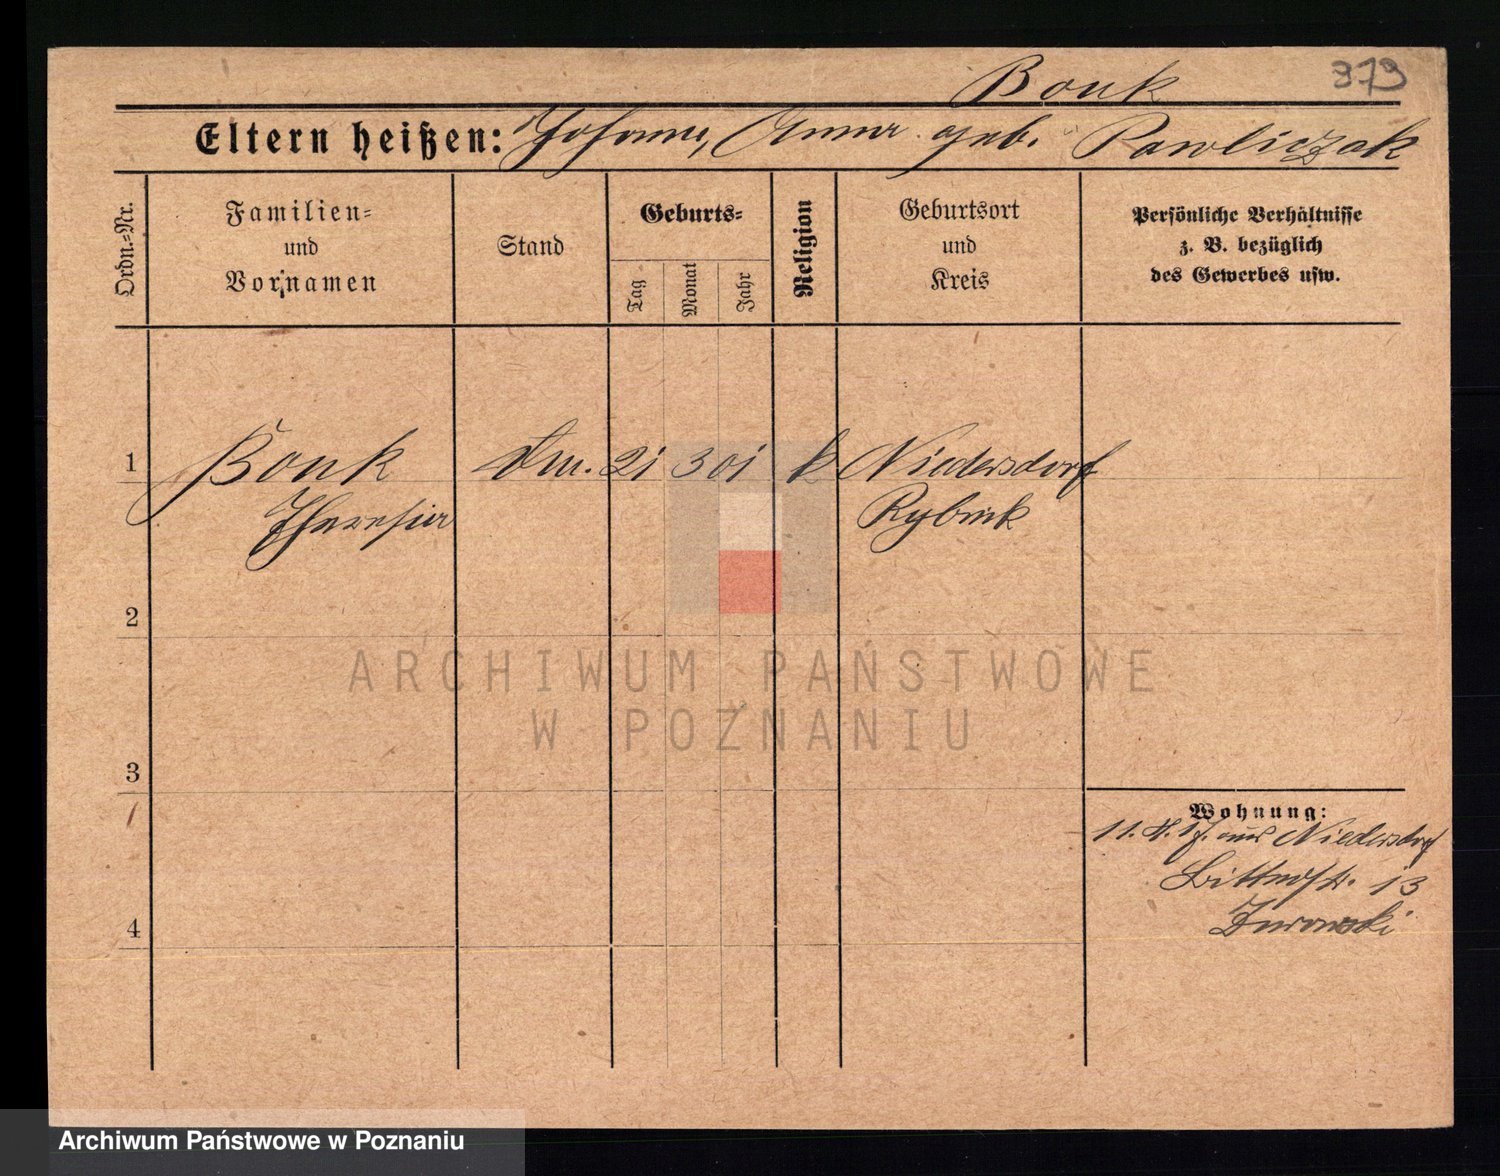 Bonk
379
Eltern heißen: Johann, Anna geb. Pawliczak
Ordn.=Nr.
Familien=
und
Vornamen
Stand
Geburts=
Tag
Monat
Jahr
Religion
Geburtsort
und
Kreis
Persönliche Verhältnisse
z. B. bezüglich
des Gewerbes usw.
1 Bonk 21 3 01 k Niedersdorf
Theresia Rybnik
2
ARCHIWUM PAŃSTWOWE
W POZNANIU
3
Wohnung:
11. 4. 17. aus Niedersdorf
13
4
Archiwum Państwowe w Poznaniu